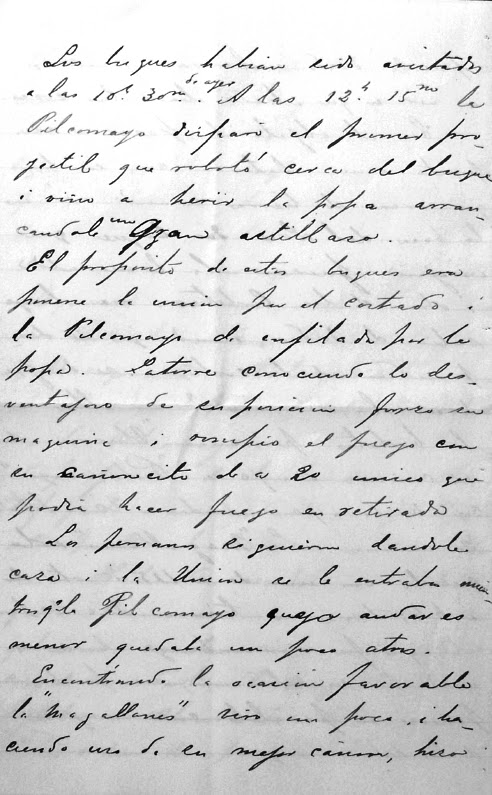 Los buques habian sido avistados
a las 10h 30m de ayer. A las 12h 15m la
Pilcomayo disparó el primer pro-
yectil que rebotó cerca del buque
i vino a herir la popa arran-
candole un Gran astillazo.
El proposito de estos buques era
ponerse la union por el costado i
la Pilcomayo de enfilada por la
popa. Latorre conociendo lo des-
ventajoso de su posicion forzo su
maquina i rompio el fuego con
su cañoncito de a 20 unico que
podia hacer fuego en retirada
Los peruanos siguieron dandole
caza i la Union se le entraba mien-
tras q la Pilcomayo cuyo andar es
menor quedaba un poco atras.
Encontrando la ocasion favorable
la "Magallanes" viro un poco i ha-
ciendo uso de su mejor cañon, hizo